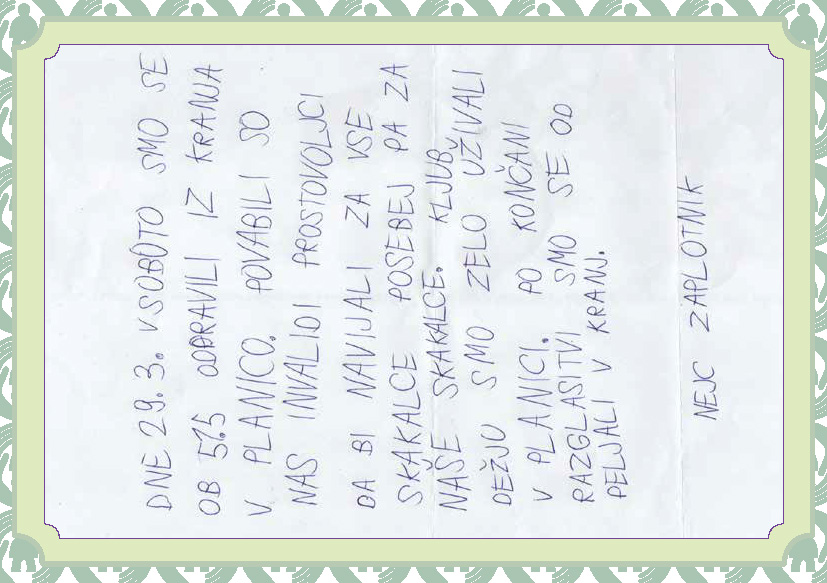 DNE 29. 3. V SOBOTO SMO SE
OB 5.15 ODPRAVILI IZ KRANJA
V PLANICO. POVABILI SO
NAS INVALIDI PROSTOVOLJCI
DA BI NAVIJALI ZA VSE
SKAKALCE POSEBEJ PA ZA
NAŠE SKAKALCE. KLJUB
DEŽJU SMO ZELO UŽIVALI
V PLANICI. PO KONČANI
RAZGLASITVI SMO SE OD
PELJALI V KRANJ.
NEJC ZAPLOTNIK